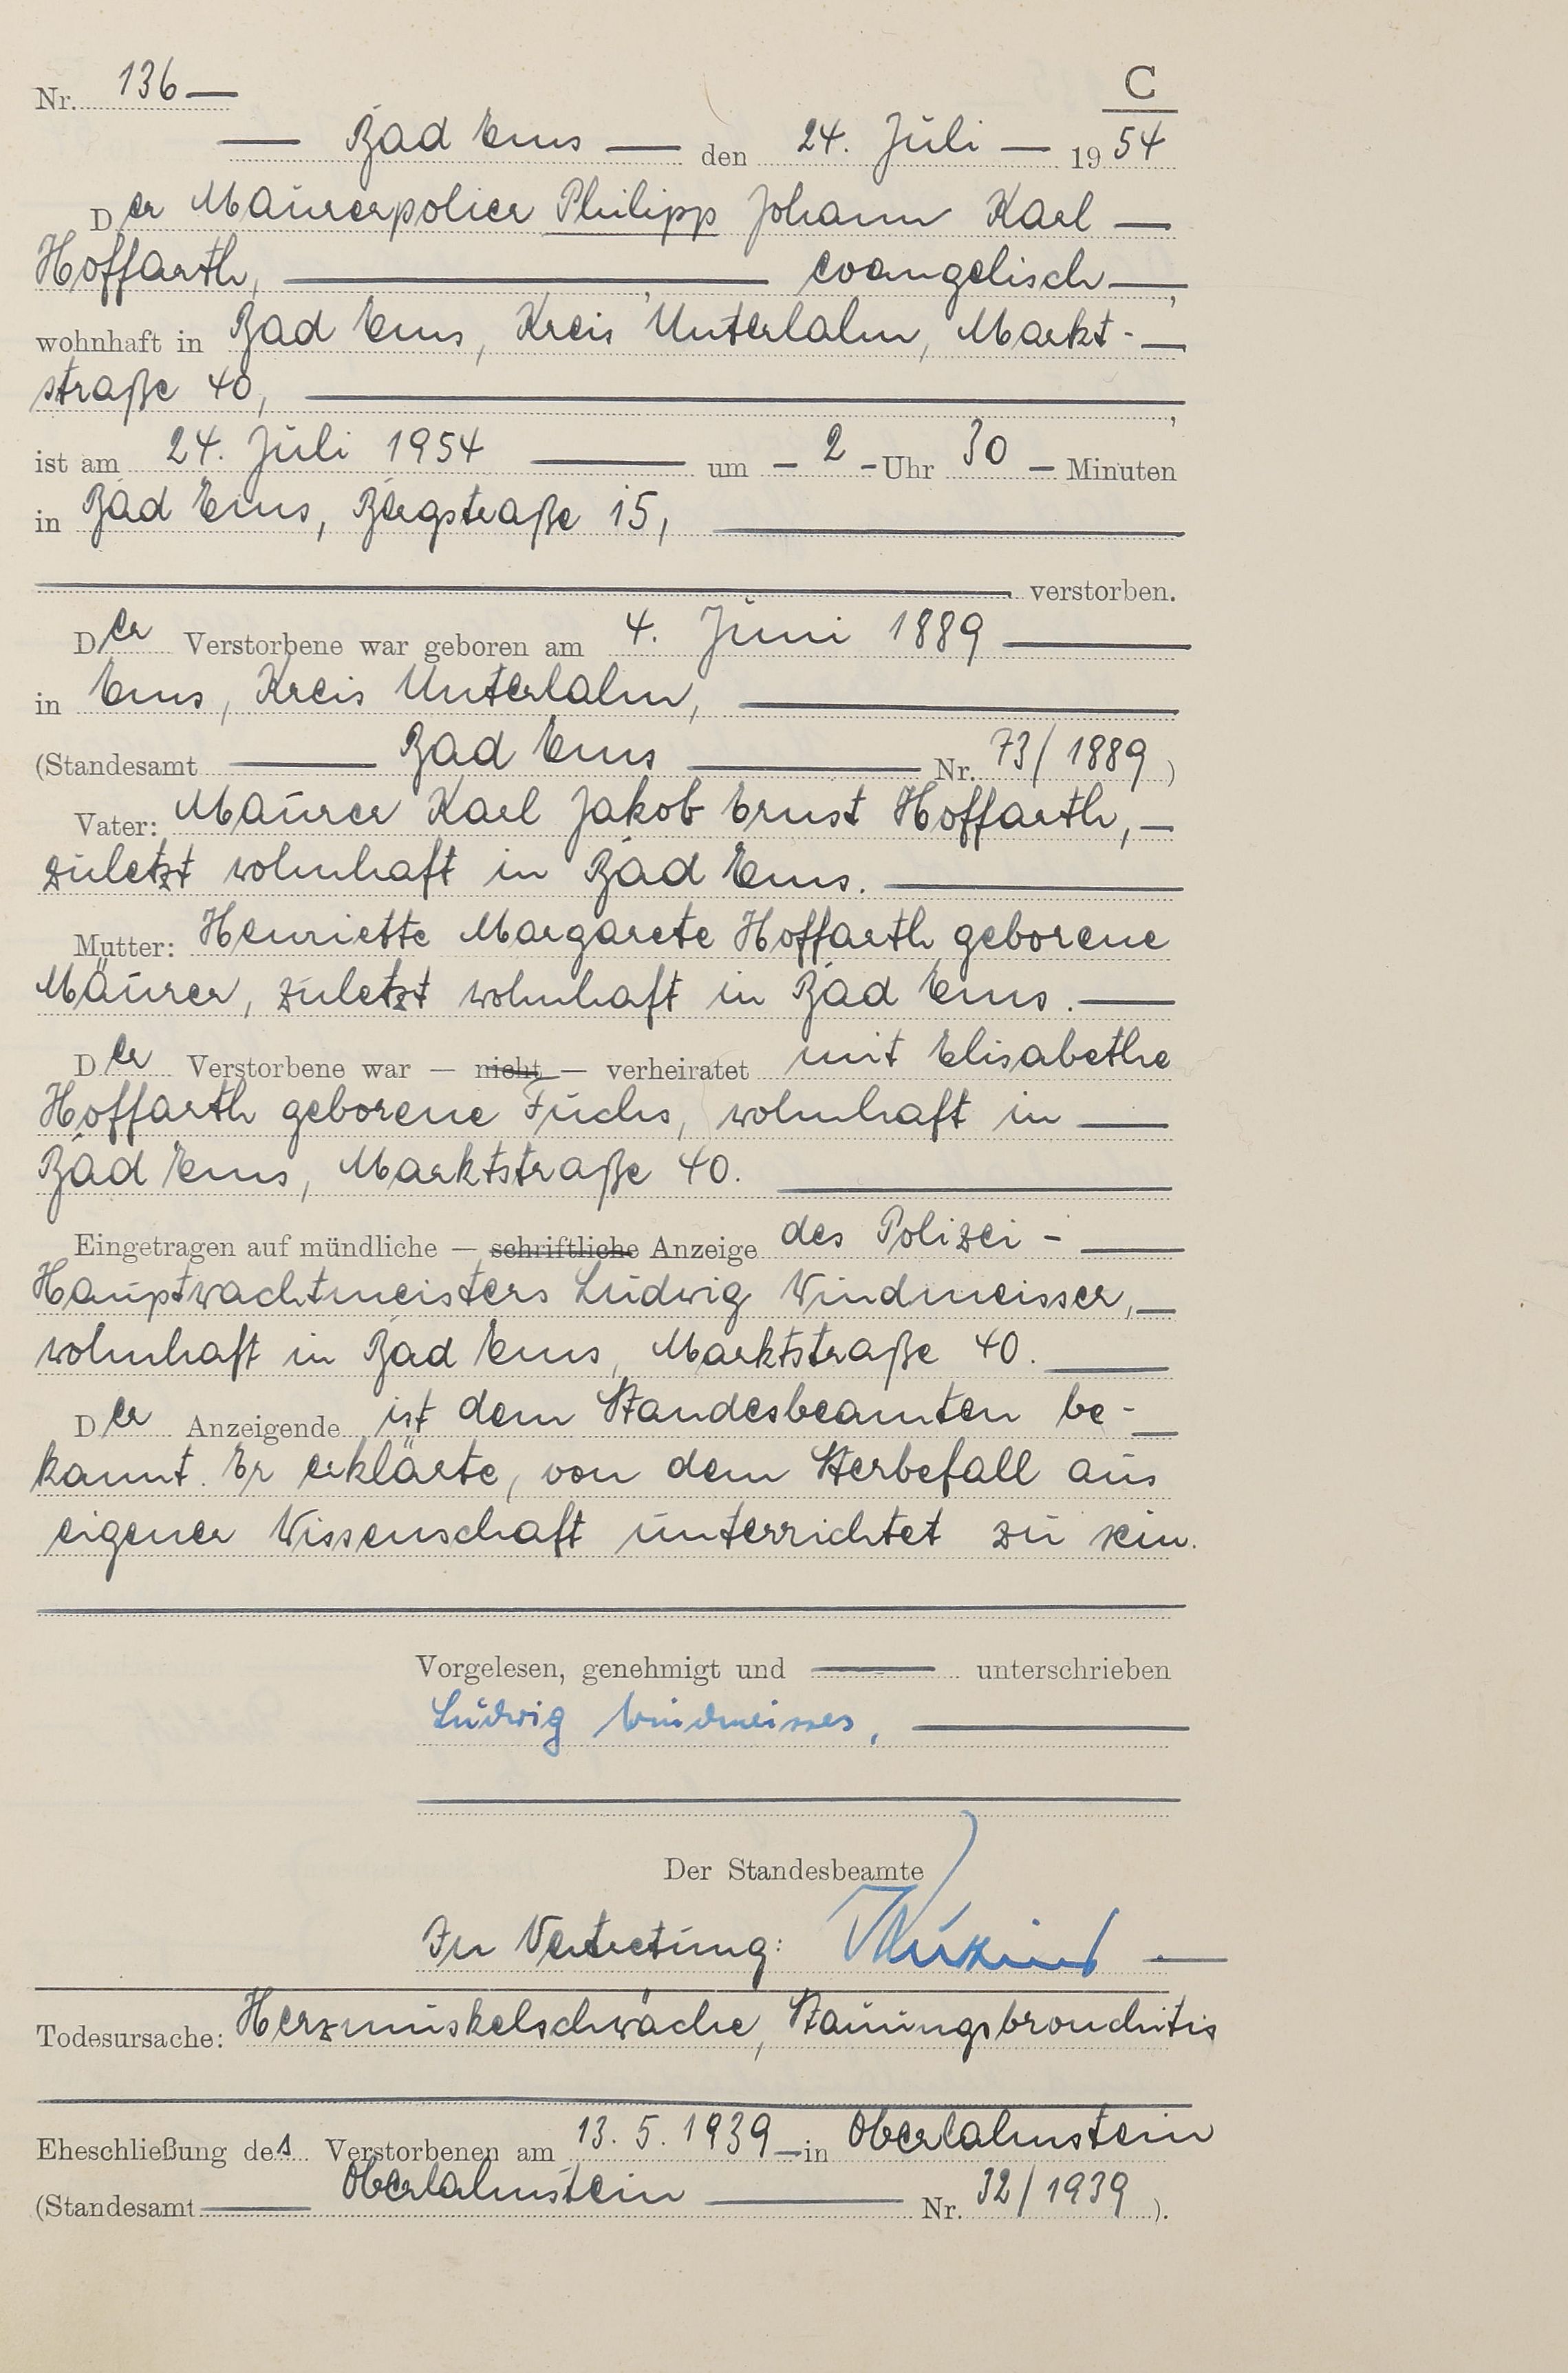 Nr. 136 — C
— Bad Ems — den 24. Juli — 1954
Der Maurerpolier Philipp Johann Karl —
Hoffarth, — evangelisch —,
wohnhaft in Bad Ems, Kreis Unterlahn, Markt- —
straße 40, —,
ist am 24. Juli 1954 — um — 2 — Uhr 30 — Minuten
in Bad Ems, Bergstraße 15, —
— verstorben.
Der Verstorbene war geboren am 4. Juni 1889 —
in Ems, Kreis Unterlahn, —
(Standesamt — Bad Ems — Nr. 73/1889)
Vater: Maurer Karl Jakob Ernst Hoffarth, —
zuletzt wohnhaft in Bad Ems. —
Mutter: Henriette Margarete Hoffarth geborene
Mäurer, zuletzt wohnhaft in Bad Ems. —
Der Verstorbene war — nicht — verheiratet mit Elisabethe
Hoffarth geborene Fuchs, wohnhaft in —
Bad Ems, Marktstraße 40. —
Eingetragen auf mündliche — schriftliche Anzeige des Polizei- —
Hauptwachtmeisters Ludwig Windmeisser, —
wohnhaft in Bad Ems, Marktstraße 40. —
Der Anzeigende ist dem Standesbeamten be- —
kannt. Er erklärte, von dem Sterbefall aus
eigener Wissenschaft unterrichtet zu sein.
Vorgelesen, genehmigt und — unterschrieben
Ludwig Windmeisser, —
Der Standesbeamte
In Vertretung:
Todesursache: Herzmuskelschwäche, Stauungsbronchitis
Eheschließung des Verstorbenen am 13. 5. 1939 — in Oberlahnstein
(Standesamt — Oberlahnstein — Nr. 32/1939).